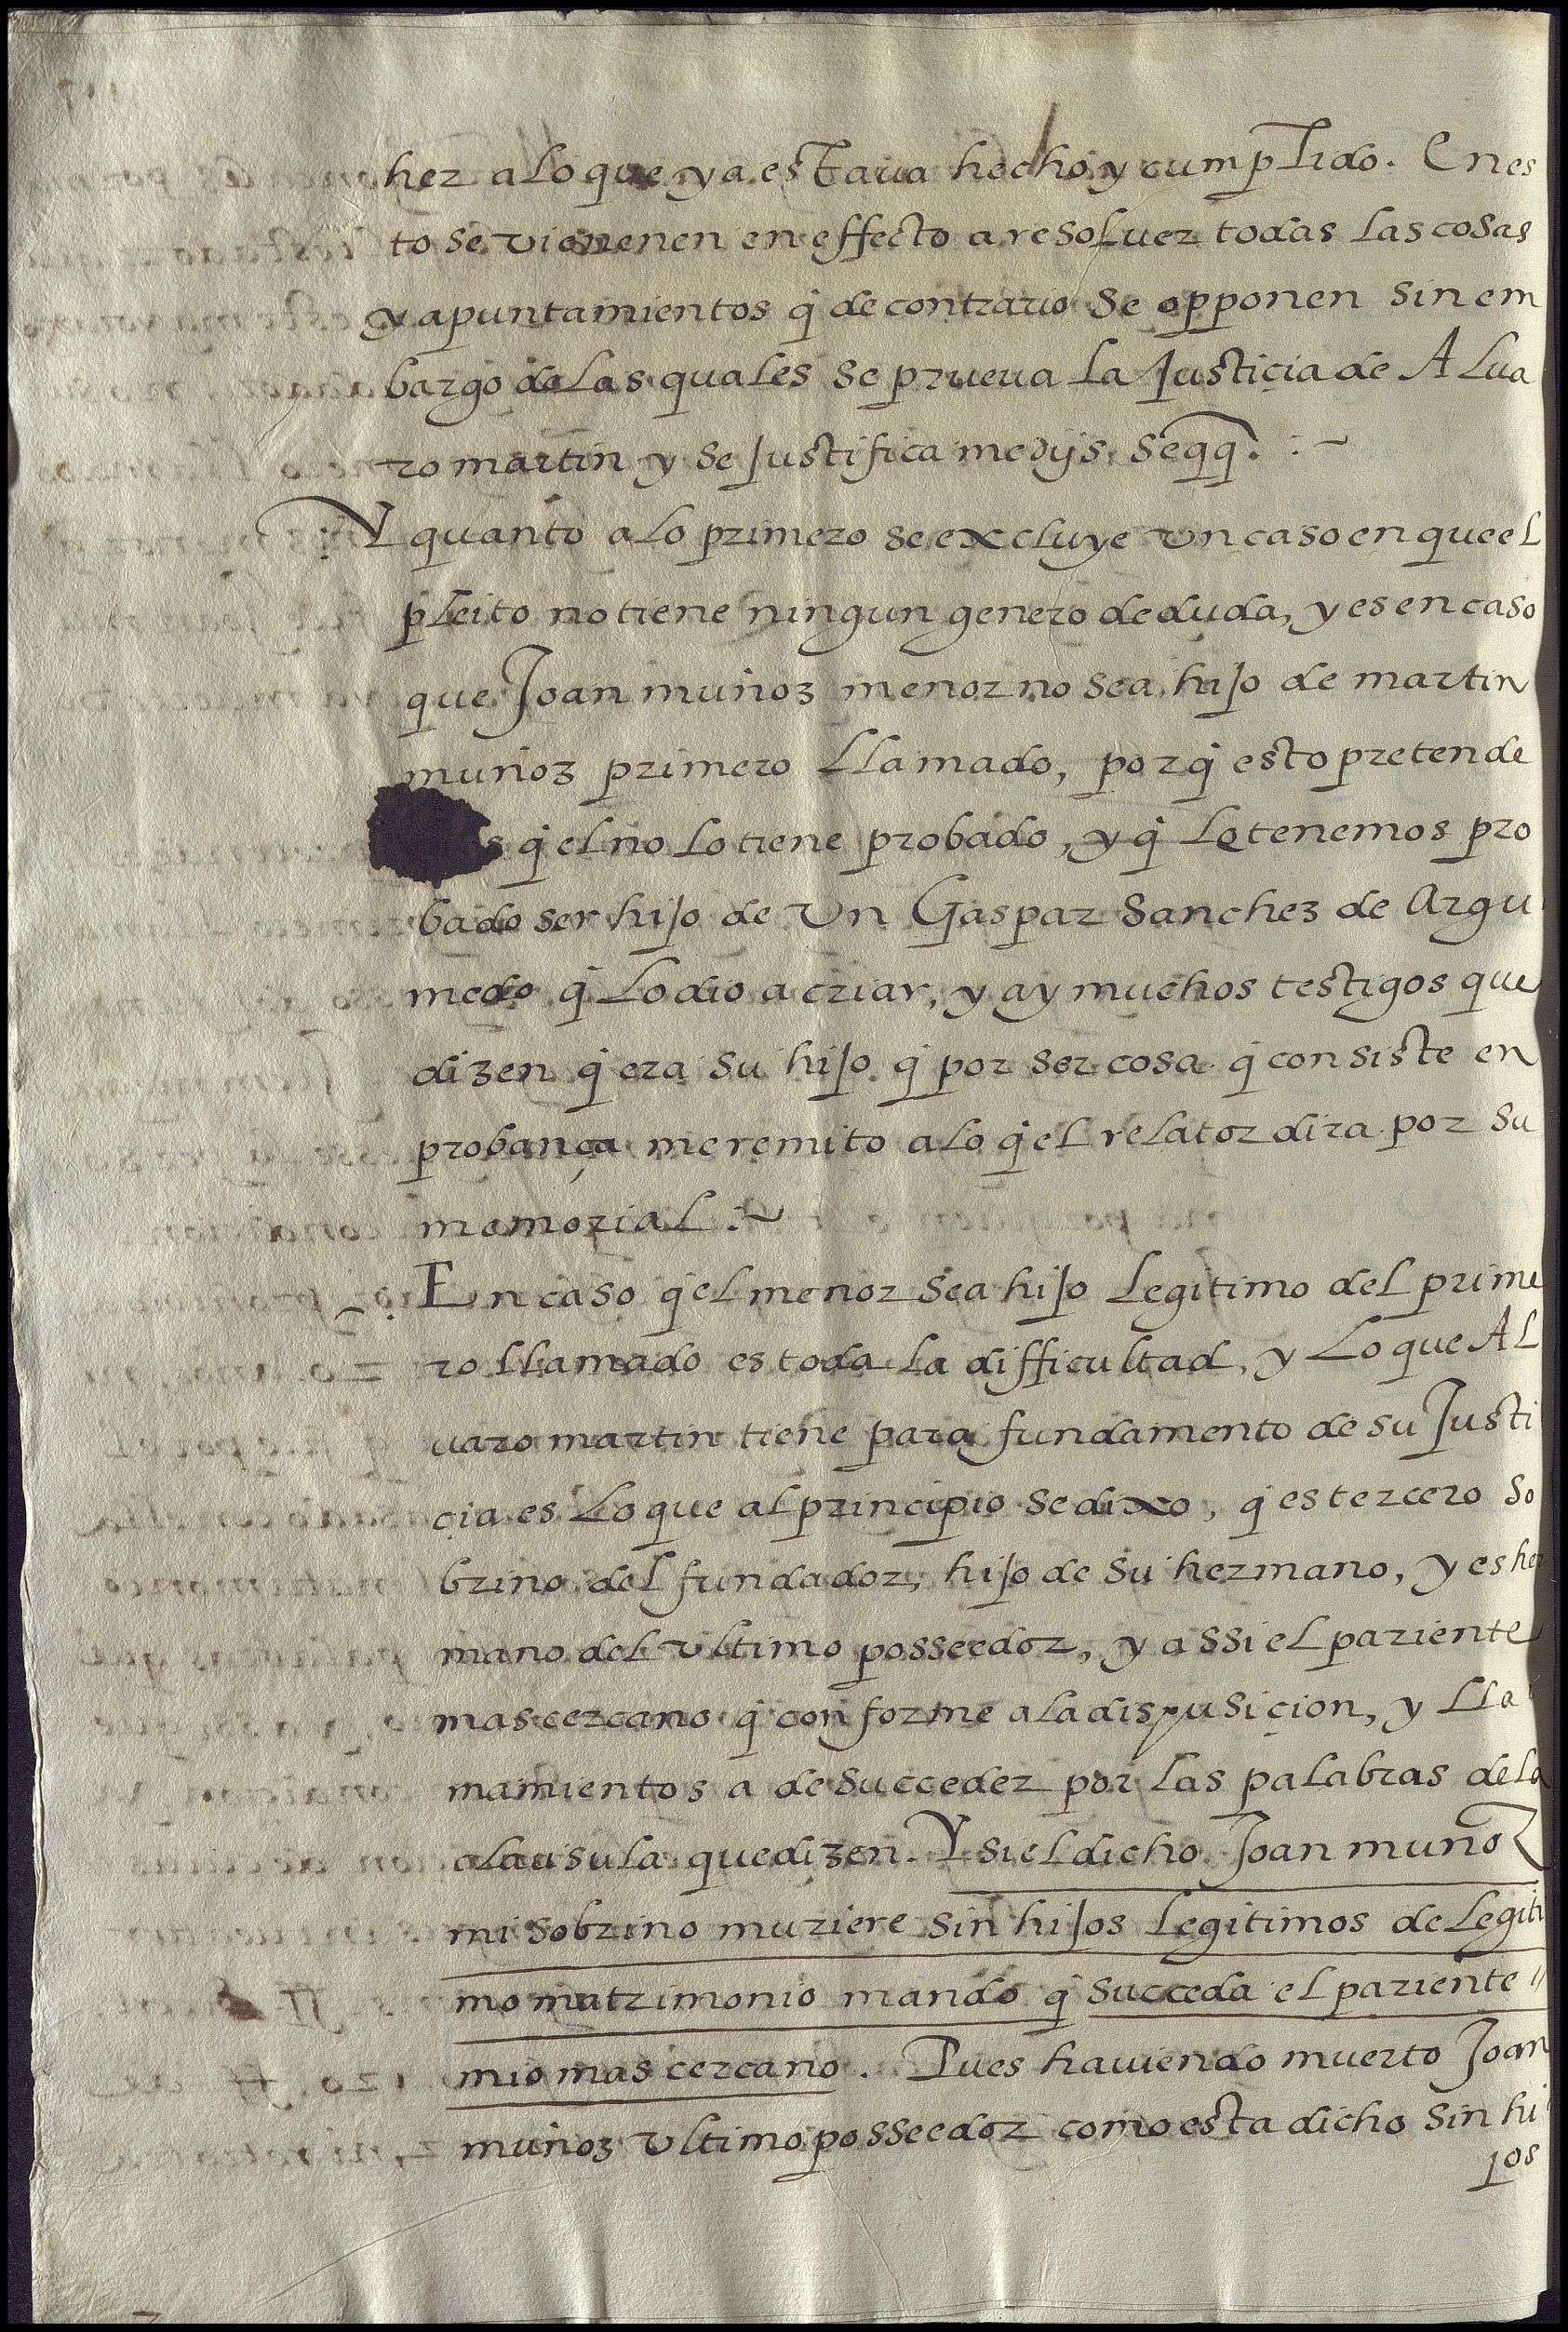 hez a lo que ya estaua hecho y cumplido. En es
to se vienenen en effecto a resoluer todas las cosas
y apuntamientos q̃ de contrario se opponen sin em
bargo de las quales se prueua la Justiçia de Alua
ro martin y se Justifica medijs seqq̃. :~
Y quanto a lo primero se excluye vn caso en que el
pleito no tiene ningun genero de duda, y es en caso
que Joan muñoz menor no sea hijo de martin
muñoz primero llamado, porq̃ esto pretende
s q̃ el no lo tiene probado, y q̃ lo tenemos pro
bado ser hijo de vn Gaspar Sanchez de Argu
medo q̃ lo dio a criar, y ay muchos testigos que
dizen q̃ era su hijo q̃ por ser cosa q̃ consiste en
probança me remito a lo q̃ el relator dira por su
memorial :~
En caso q̃ el menor sea hijo legitimo del prime
ro llamado es toda la difficultad, y lo que Al
uaro martin tiene para fundamento de su Justi
çia es lo que al principio se dixo, q̃ es tercero so
brino del fundador, hijo de su hermano, y es her
mano del vltimo posseedor, y assi el pariente
mas cercano q̃ conforme a la dispusiçion, y lla
mamientos a de succeder por las palabras de la
clausula que dizen. Y si el dicho Joan muñoz
mi sobrino muriere sin hijos legitimos de legiti
mo matrimonio mando q̃ succeda el pariente //
mio mas cercano. Pues hauiendo muerto Joan
muñoz vltimo posseedor como esta dicho sin hi
jos